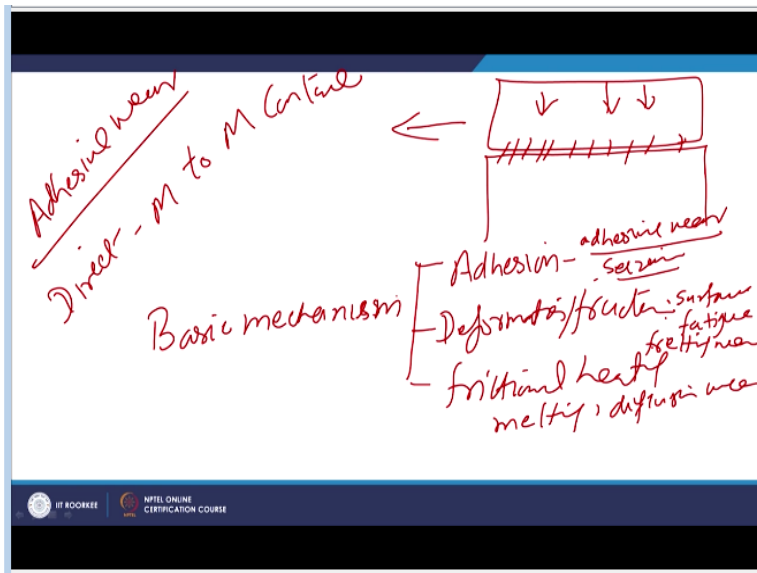 Adhesive wear
Direct - M to M Contact
Basic mechanism
Adhesion - adhesive wear
Seizure
Deformation/fracture: surface
fatigue
fretting wear
frictional heating
melting, diffusion wear
IIT ROORKEE
NPTEL ONLINE
CERTIFICATION COURSE